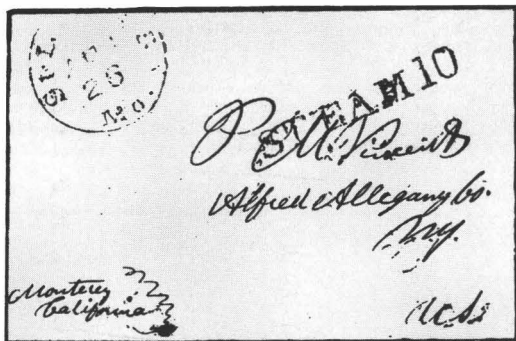 26
Mo.
STEAM 10
P M Vincent
Alfred Allegany Co.
N.Y.
Monterey
California
U.S.